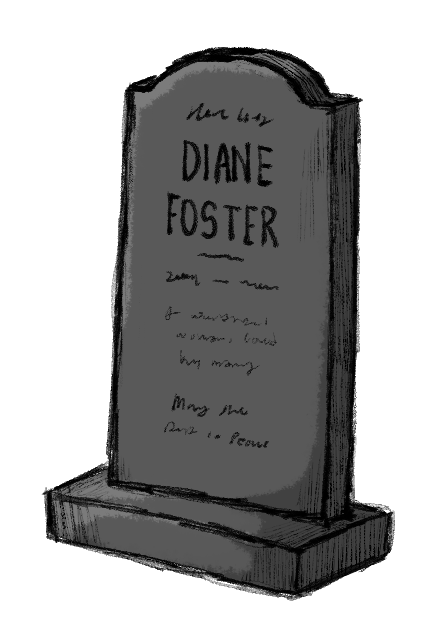 Here lies
DIANE
FOSTER
A
woman, loved
by many
May she
Rest in Peace